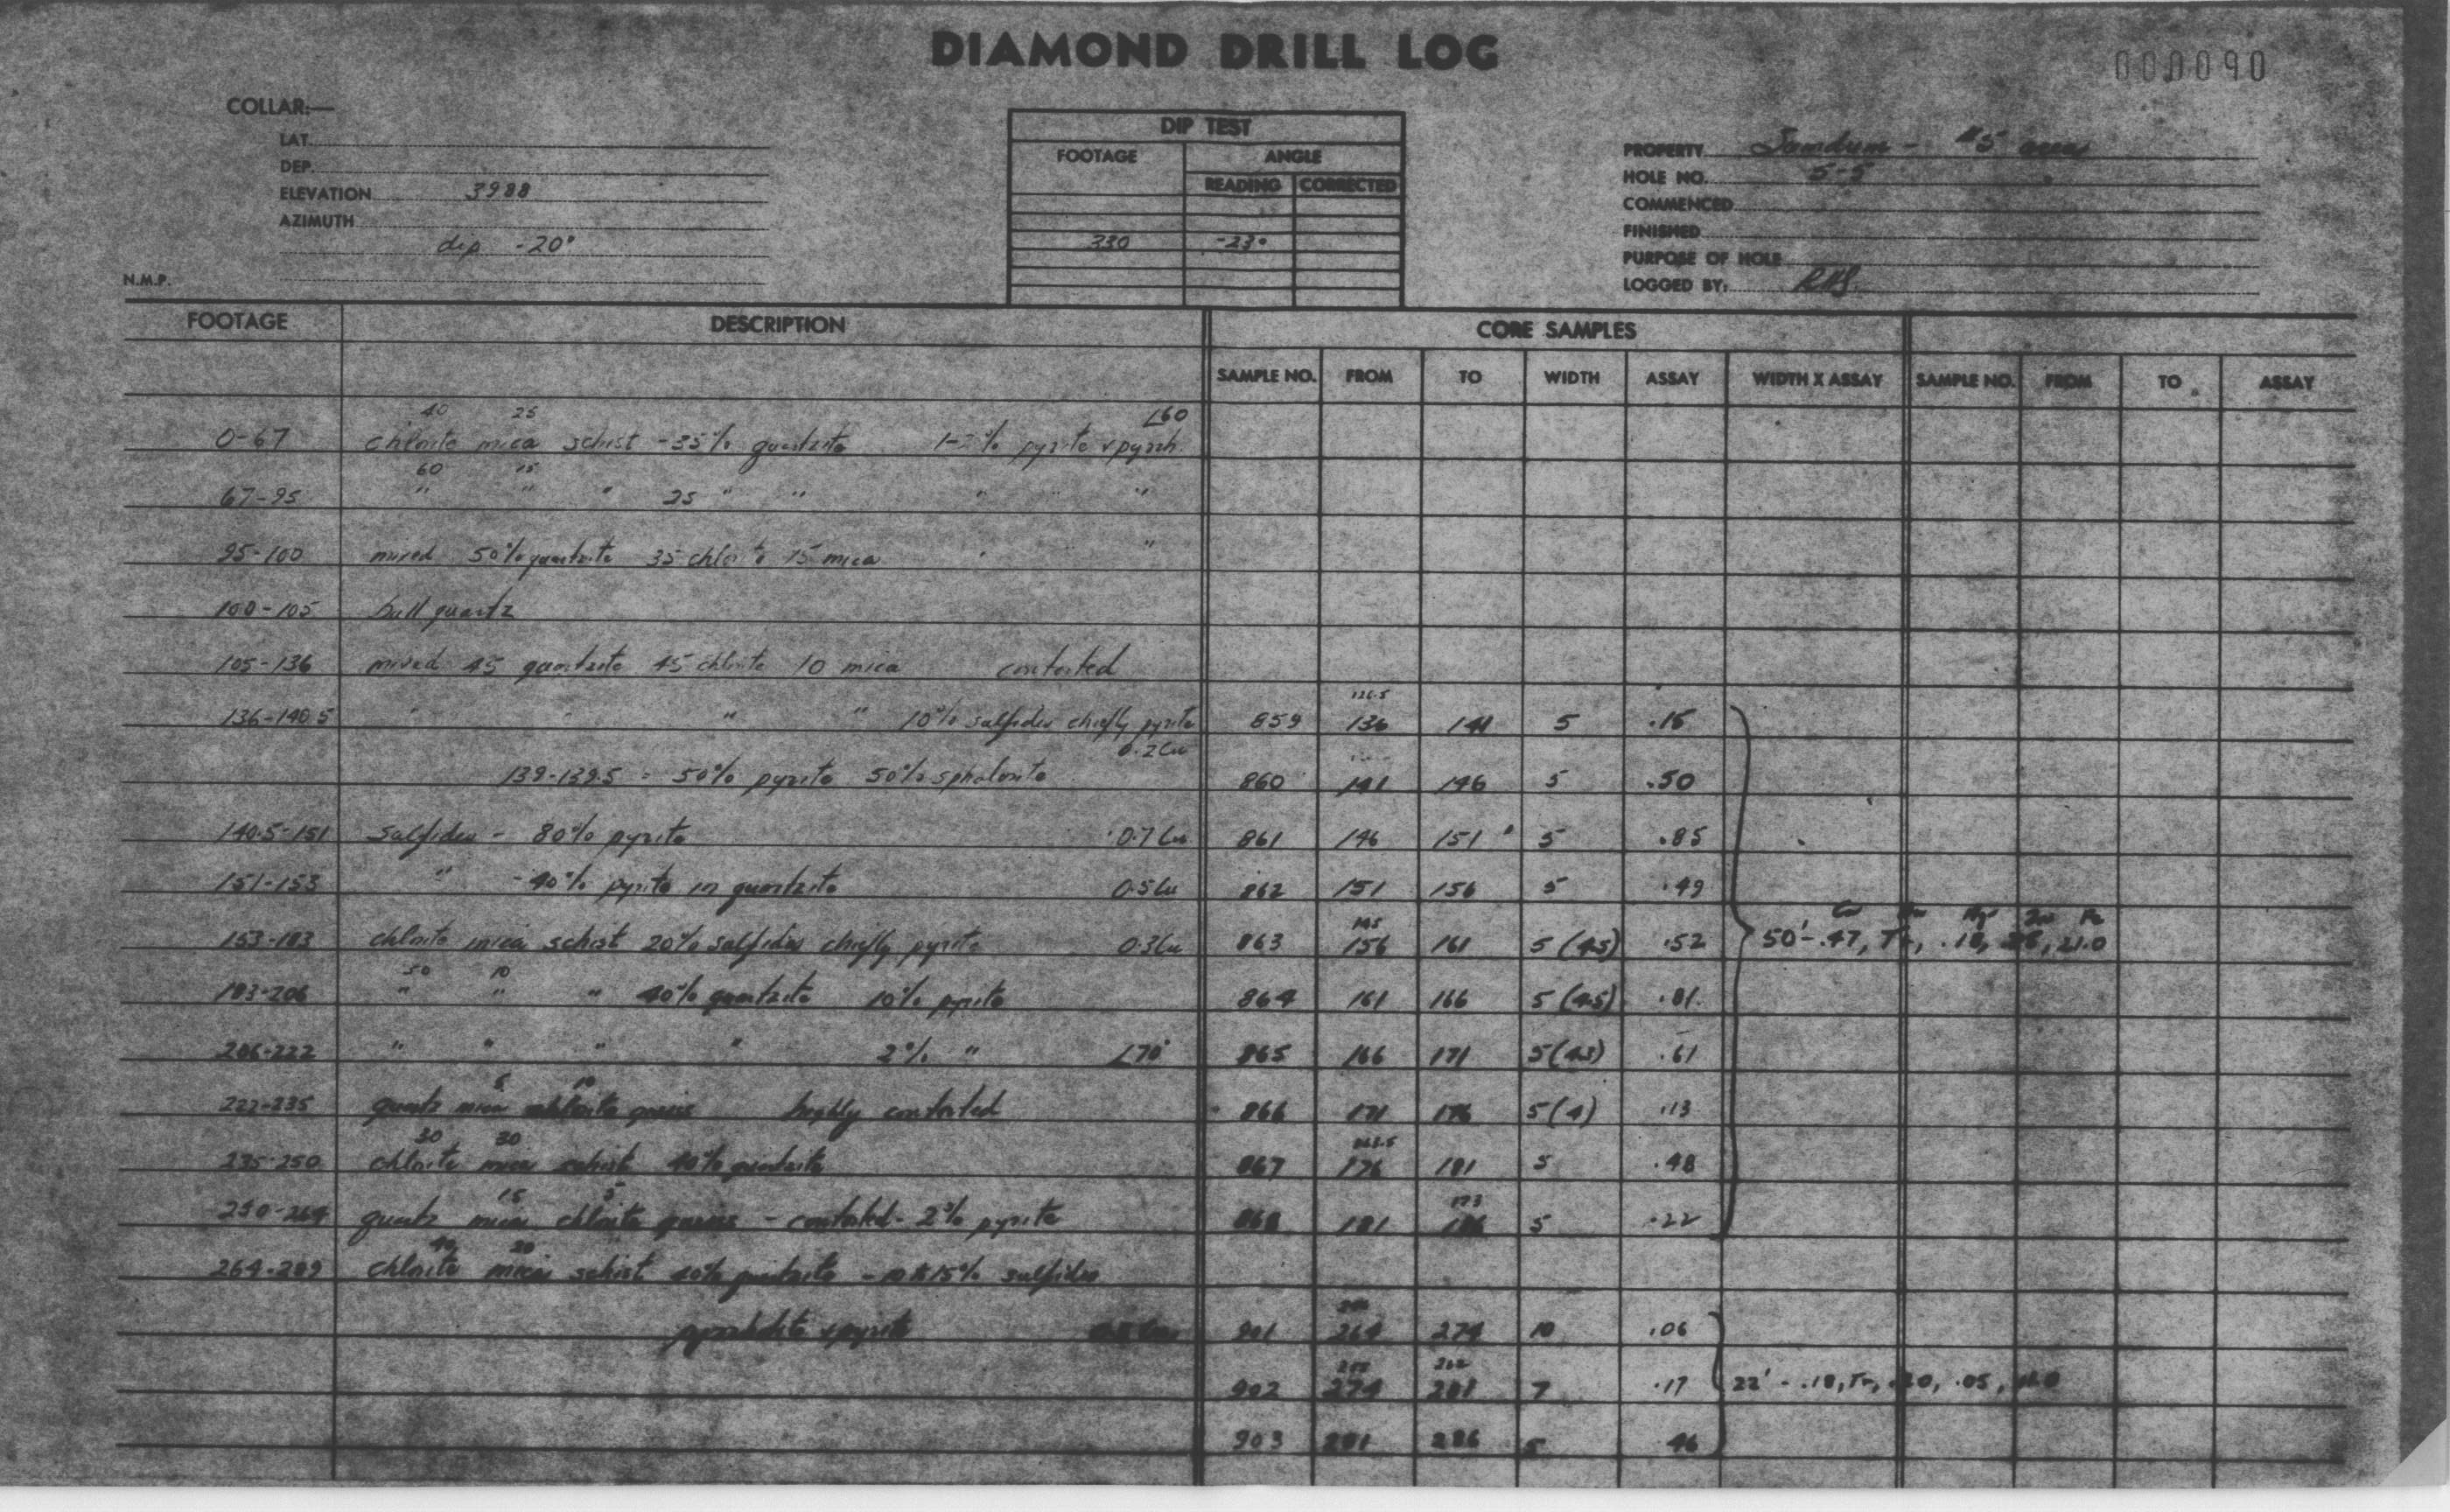 DIAMOND DRILL LOG
000090
COLLAR:—
LAT.
DEP.
ELEVATION 3988
AZIMUTH
dip -20°
N.M.P.
DIP TEST
FOOTAGE ANGLE
READING CORRECTED
330 -23°
PROPERTY - #5 area
HOLE NO. 5-5
COMMENCED
FINISHED
PURPOSE OF HOLE
LOGGED BY:
FOOTAGE DESCRIPTION CORE SAMPLES
SAMPLE NO. FROM TO WIDTH ASSAY WIDTH X ASSAY SAMPLE NO. FROM TO ASSAY
40 25 ∠60
0-67 chlorite mica schist -35% quartzite pyrite + pyrrh.
60 15
67-95 " " " 25 " " " " "
95-100 mixed 50% quartzite 35 chlorite 15 mica "
100-105 bull quartz
105-136 mixed 45 quartzite 45 chlorite 10 mica contorted
136-140.5 " " " " 10% sulfides chiefly pyrite 859 136 141 5 .15
0.2Cu
139-139.5 = 50% pyrite 50% sphalerite 860 141 146 5 .50
140.5-151 sulfides - 80% pyrite 0.7Cu 861 146 151 5 .85
151-153 " -40% pyrite in quartzite 0.5Cu 862 151 156 5 .49
Cu Ag Zn Fe
145
153-183 chlorite mica schist 20% sulfides chiefly pyrite 0.3Cu 863 156 161 5 (4.5) .52 50'-.47, Tr, .18, 21.0
50 10
183-206 " " " 40% quartzite 10% pyrite 864 161 166 5 (4.5) .81
206-222 " " " " 2% " ∠70° 865 166 171 5 (4.5) .61
5 10
222-235 quartz mica chlorite gneiss highly contorted 866 171 176 5 (4) .13
30 30
235-250 chlorite mica schist 40% quartzite 867 176 181 5 .48
15 5 173
250-264 quartz mica chlorite gneiss - contorted - 2% pyrite 868 181 186 5 .22
40 20
264-289 chlorite mica schist 40% quartzite - 10 to 15% sulfides
pyrrhotite + pyrite 901 264 274 10 .06
902 274 281 7 .17 22' - .18, Tr, .20, .05,
903 281 286 5 .46